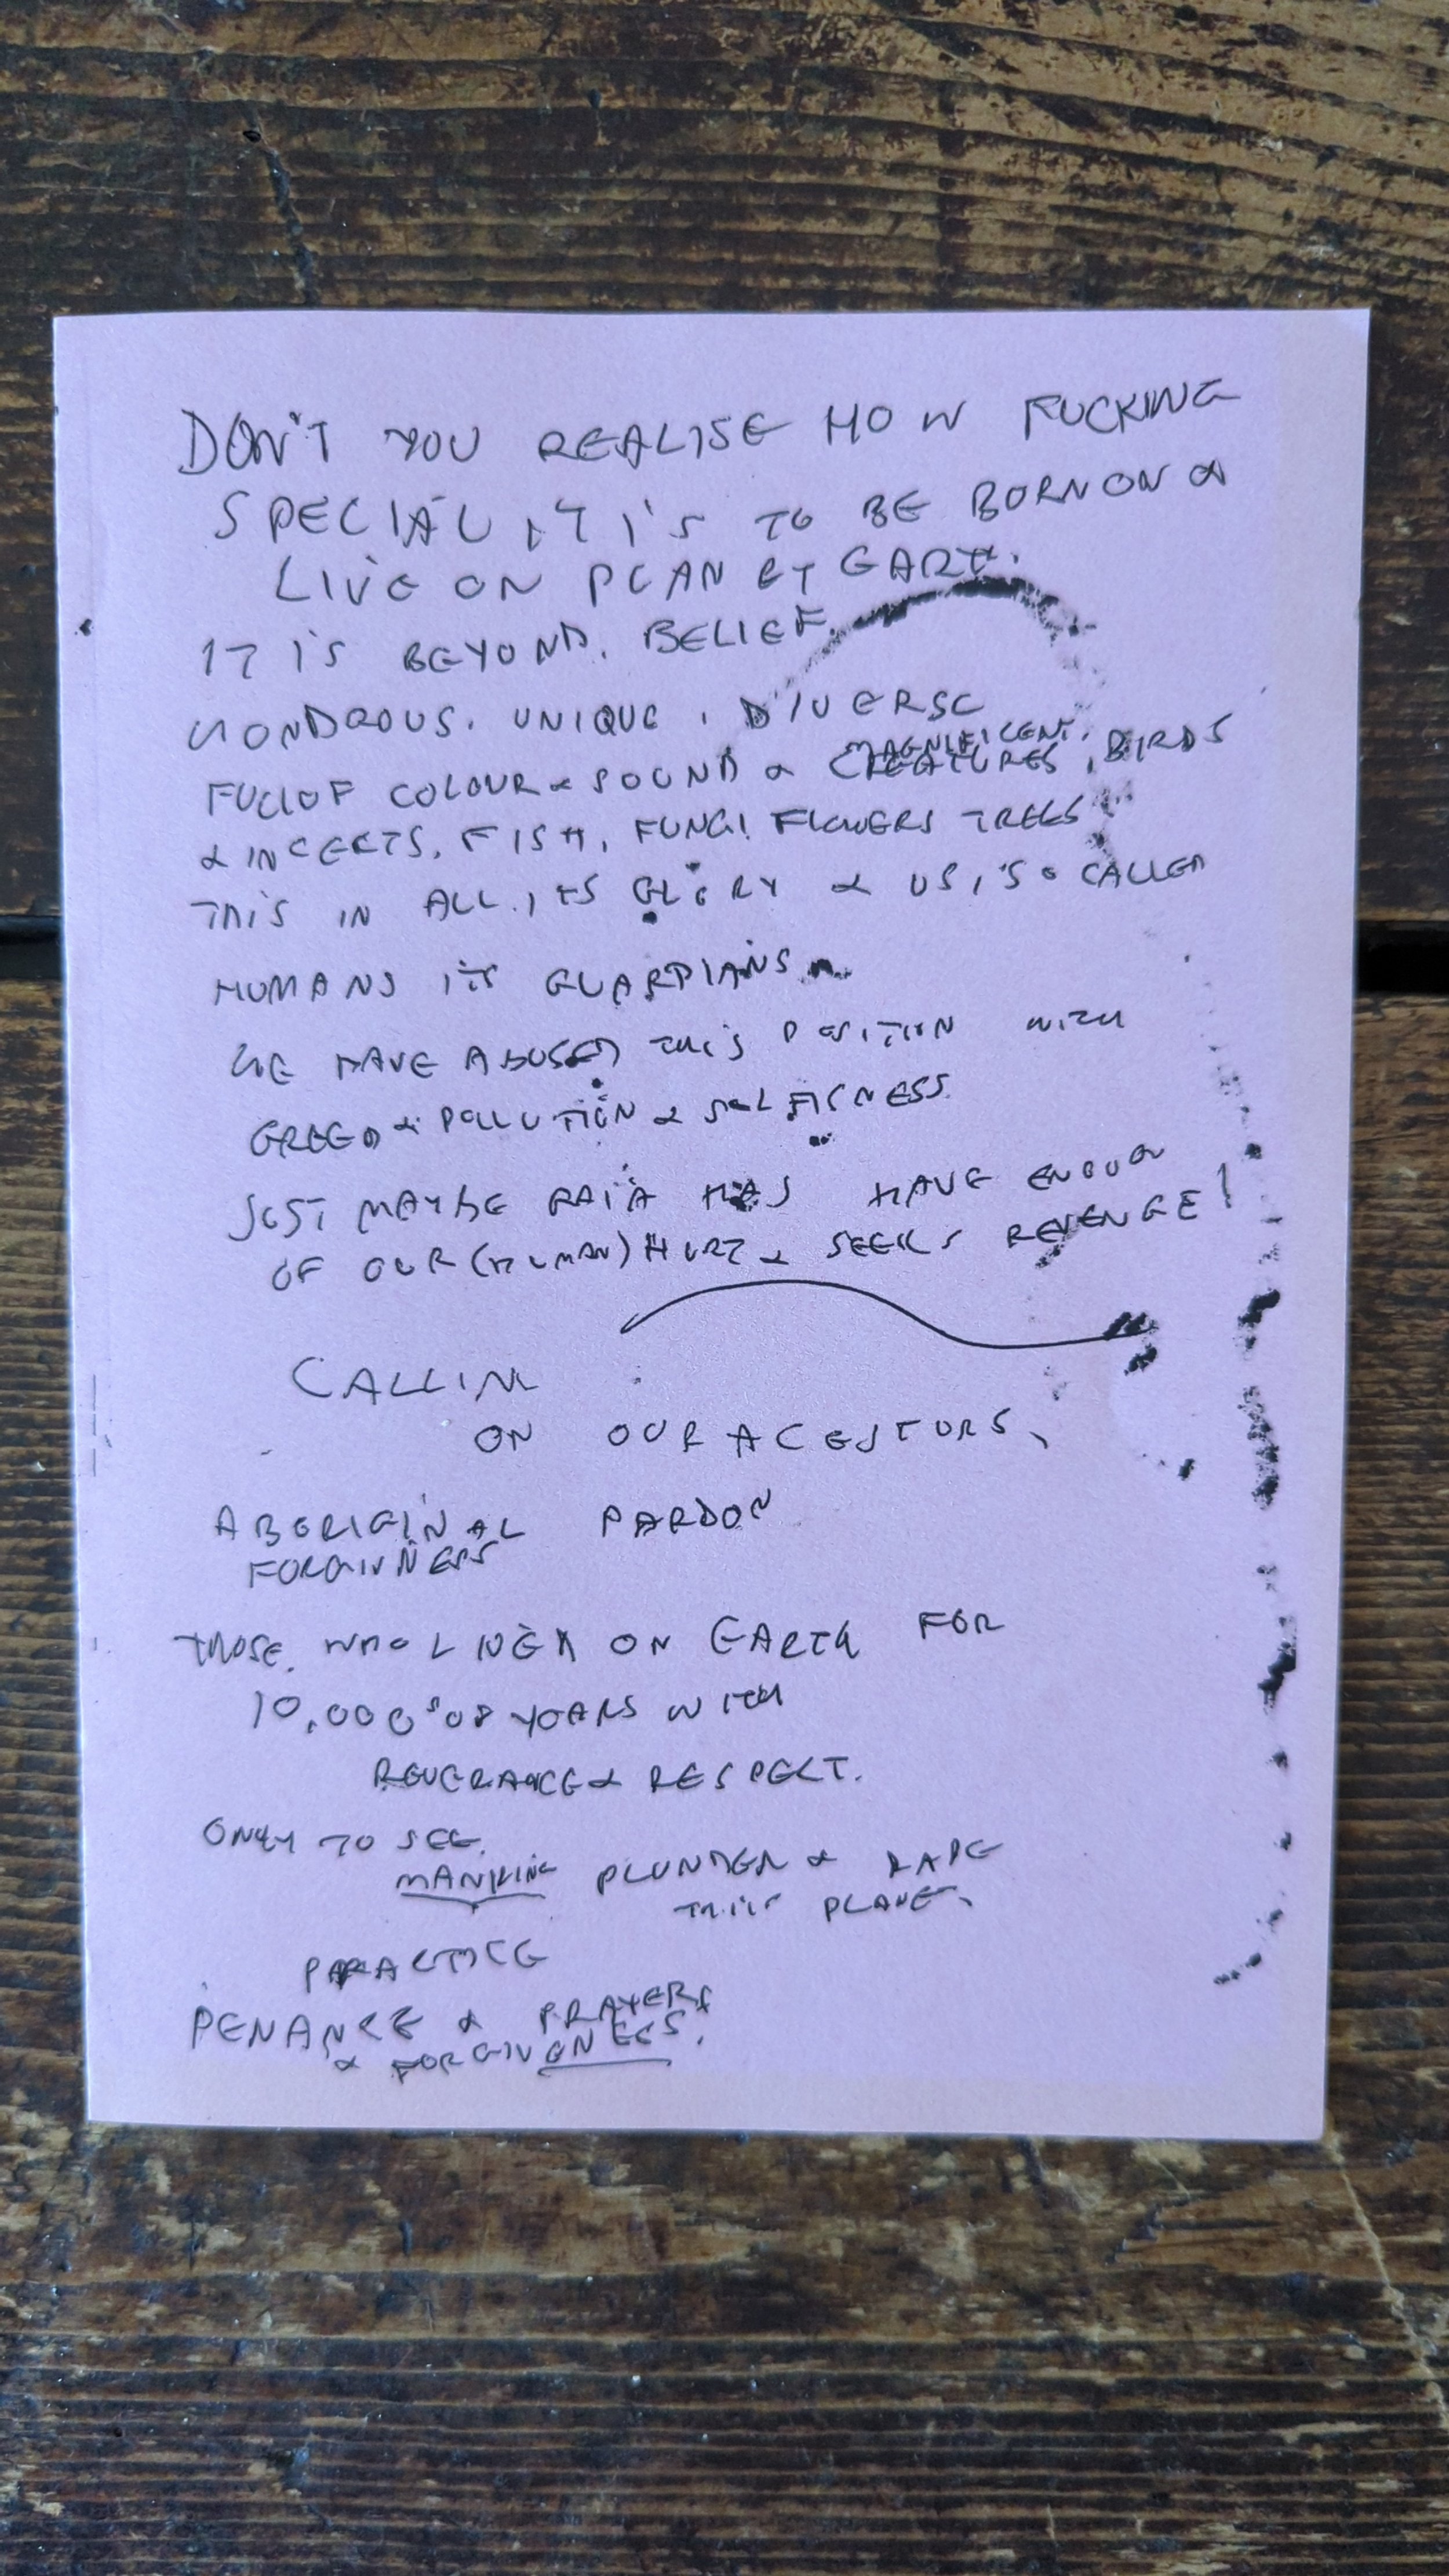 DON'T YOU REALISE HOW FUCKING
SPECIAL IT IS TO BE BORN ON &
LIVE ON PLANET EARTH.
IT IS BEYOND. BELIEF.
WONDROUS. UNIQUE. DIVERSE
MAGNIFICENT.
FULL OF COLOUR & SOUND & CREATURES, BIRDS
& INCECTS. FISH, FUNGI FLOWERS TREES
THIS IN ALL ITS GLORY & US, SO CALLED
HUMANS ITS GUARDIANS
WE HAVE ABUSED THIS POSITION WITH
GREED & POLLUTION & SELFISNESS.
JUST MAYBE GAIA HAS HAVE ENOUGH
OF OUR (HUMAN) HURT & SEEKS REVENGE!
CALLING
ON OUR ACESTORS,
ABORIGINAL PARDON
FORGIVNESS
THOSE. WHO LIVED ON EARTH FOR
10,000'S OF YEARS WITH
REVERANCE & RESPECT.
ONLY TO SEE.
MANKIND PLUNDER & RAPE
THIS PLANET.
PRACTICE
PENANCE & PRAYERS
& FORGIVENESS.